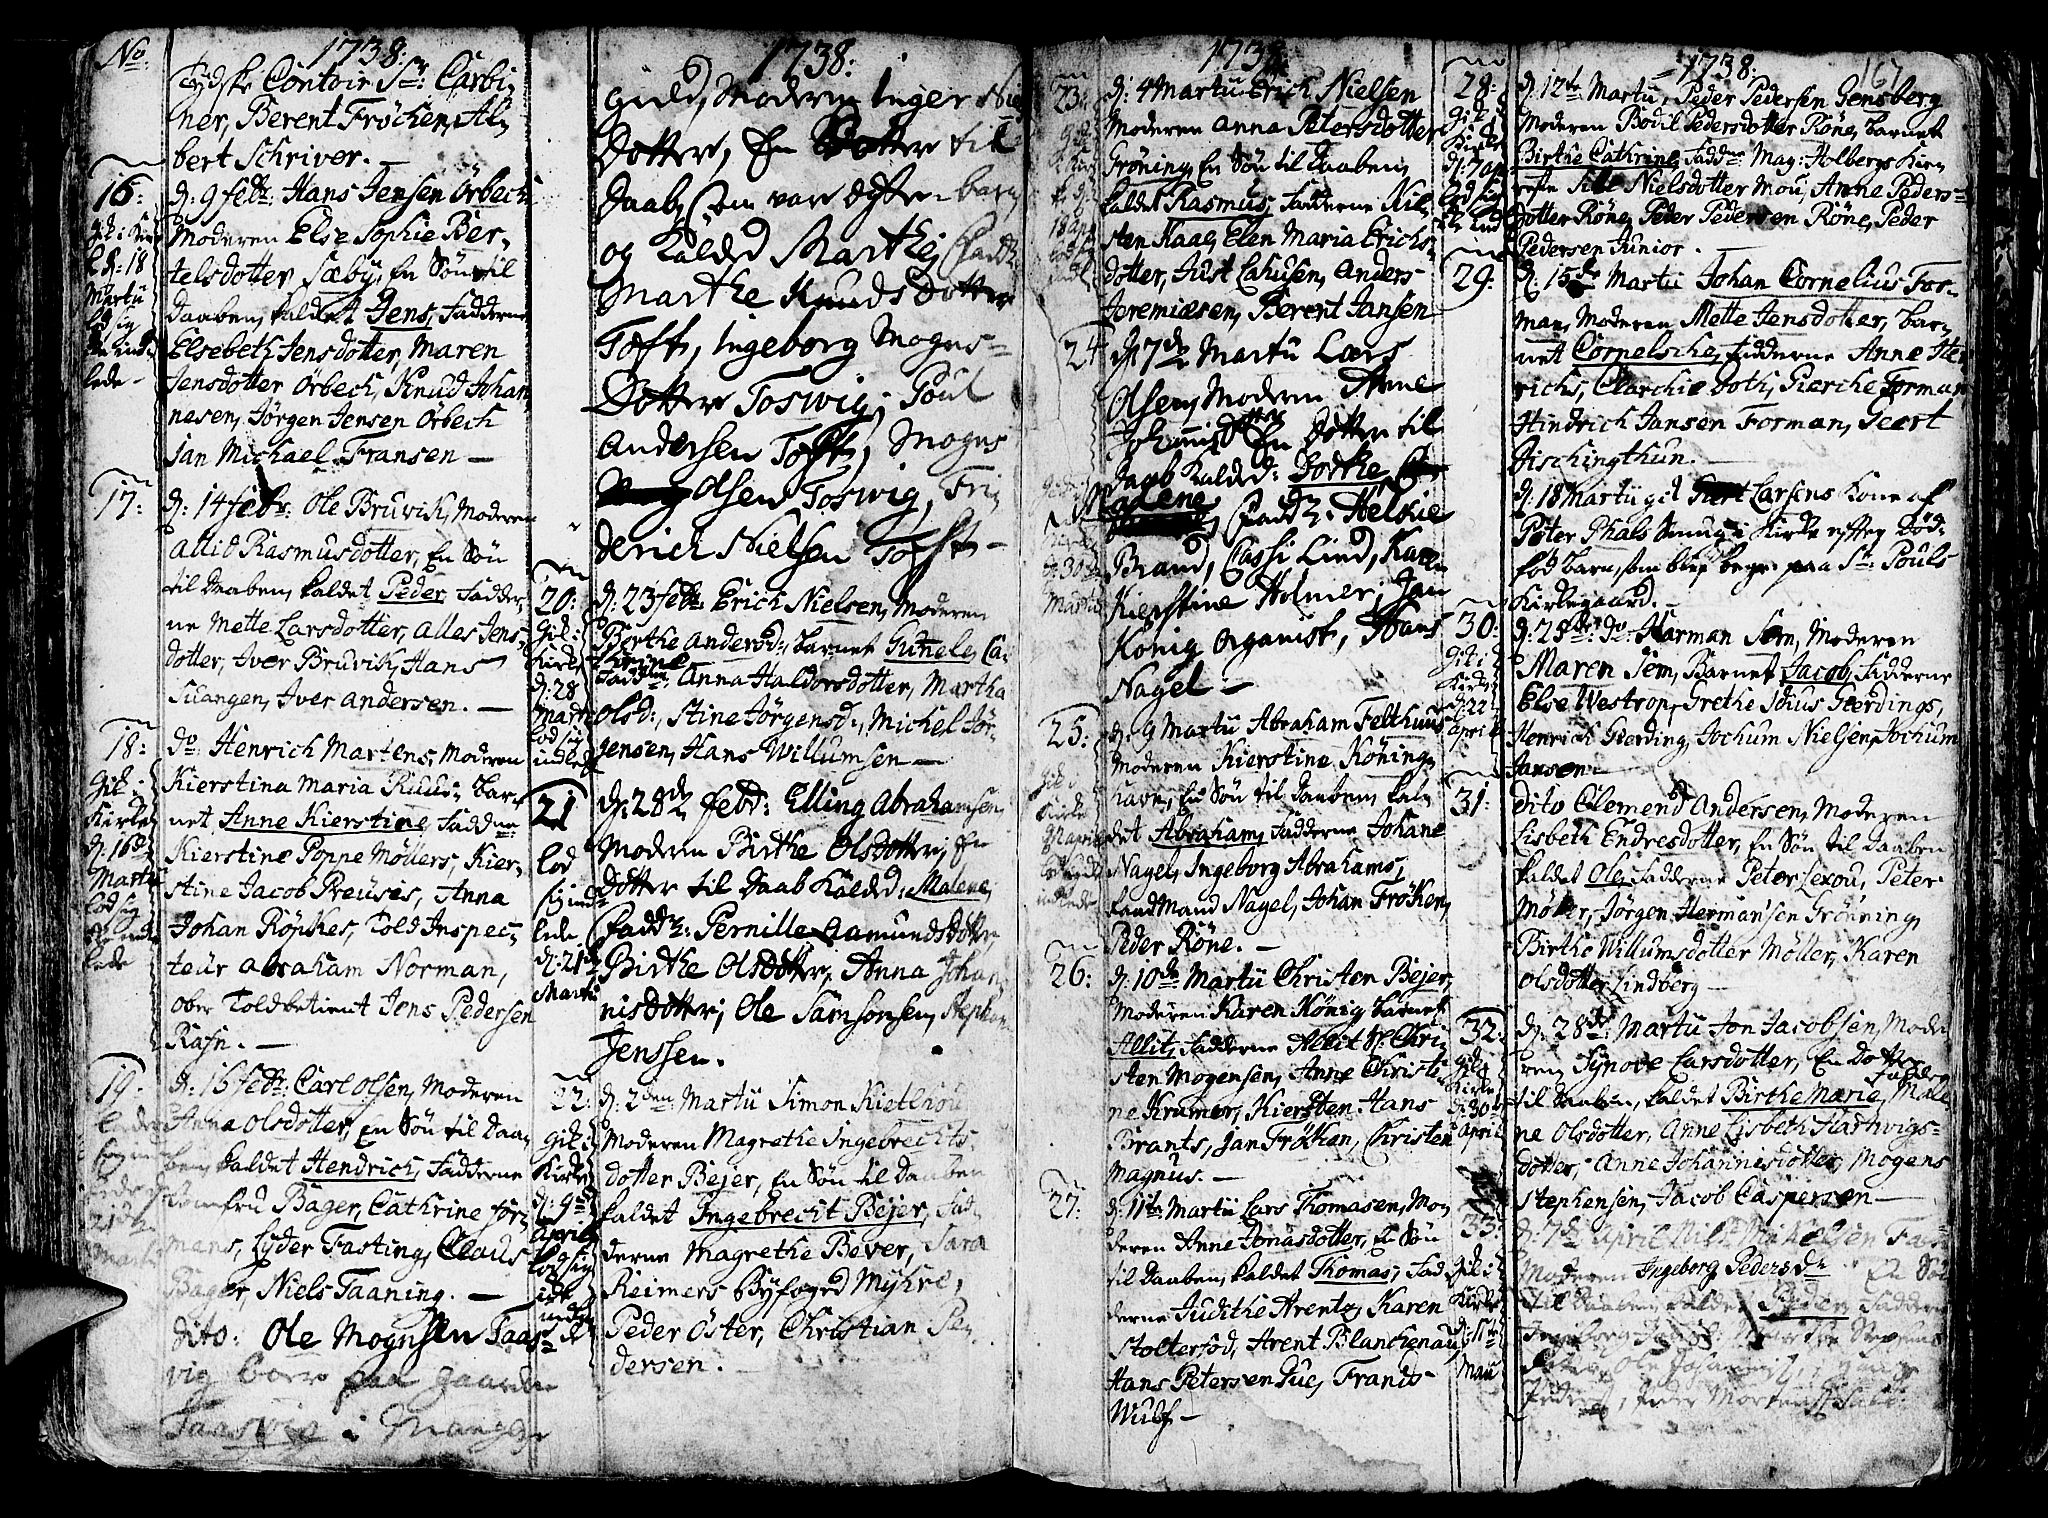 No.
1738.
Tydske Contoir Sr: Carbi,
ner, Berent Frøchen, Al,
bert Schriver.
16:
gik i Kir
k d: 18
Martii
lod sig
inde
lede
d: 9 febr: Hans Jensen Örbech
Moderen Else Sophie Ber,
telsdotter Sæby, En Søn til
Daaben, kaldet Jens, Fadderne
Elsebeth Jensdotter, Maren
Jensdotter Örbech, Knud Johan,
nesen, Jörgen Jensen Örbech
Jan Michael Fransen —
17:
d: 14 febr: Ole Bruvik, Moderen
Allid Rasmusdotter, En Søn
til Daaben, kaldet Peder, Fadder,
ne Mette Larsdotter, Alles Jens,
dotter, Iver Bruvik, Hans
Iver Andersen. —
18:
Gik i
Kirke
d: 16de
Martii
lod sig
inde
lede
do: Henrich Martens, Moderen
Kierstina Maria Ruus, bar,
net Anne Kierstine, Faddne:
Kierstine Poppe Möllers, Kier,
stine Jacob Preuses, Anna
Johan Röpkes, Told Inspec,
teur Abraham Norman,
ober Toldbetient Jens Pedersen
Rafn. —
19.
d: 16 febr: Carl Olsen, Moderen
Anna Olsdotter, En Søn til Daa,
ben, kaldet Hendrich, Fadderne
Jomfru Bager, Cathrine for,
mans, Lyder Fasting, Claus
Bager, Niels Taaning. —
dito: Ole Mognsen Taas=
vig boer paa Gaarden
Taaswig i Manger
1738:
Guld, Moderen Inger Niels
Dotter, En Dotter til
Daab, som var
og kalded Marthe, Fadd:
Marthe Knuds Dotter
Toft, Ingeborg Mogns=
Dotter Toswig, Poul
Andersen Toft, Mogns
Olsen Toswig, Fri,
derich Nielsen Toft —
20:
Gik i
Kirke
d: 28
Martii
lod sig
indlede
d: 23 febr: Erich Nielsen, Moderen
Berthe Andersd:, barnet Gunnele Ca,
thrine
Faddne: Anna Haldorsdotter, Martha
Olsd:, Stine Jörgensd:, Michel Jör,
gensen, Hans Willumsen —
21
lod
sig ind
lede
d: 21de
Martii
d: 28de febr: Elling Abrahamsen,
Moderen Birthe Olsdotter, En
Dotter til Daab kalded: Malene,
Fadd: Pernille Aamundsdotter
Birthe Olsdotter, Anna Johan,
nisdotter, Ole Samsonsen, Stephan
Jenssen.
22:
gik i
Kirke
d: 9de
April
lod sig
inde
d: 2den Martii Simon Kielhou
Moderen Magrethe Ingebrechts
dotter Bejer, En Søn til Daaben
kaldet Ingebrecht Bejer, Fad,
derne Magrethe Bever, Sara
Reimers Byfoged Myhre,
Peder Öster, Christian Pe,
dersen.
1738.
23:
18 apr
d: 4 Martii Erich Nielsen
Moderen Anna Petersdotter
Gröning, En Søn til Daaben,
kaldet Rasmus, Fadderne Kil,
sten Kaae, Elen Maria Erichs,
dotter, Just Cahusen, Anders
Jeremiesen, Berent Jansen
24
d: 30
Martii
d: 7de Martii Lars
Olsen, Moderen Anne
Johannisd En Dotter til
Daab kalded: Dorthe
Malene, Fadd: Helvie
Brand, Cassi Lind, Karen
Kierstine Holmer, Jan
König Organist, Hans
Nagel —
25:
Gik i
Kirke
d: 9 Martii Abraham Felthuus
Moderen Kierstine Köning,
havn, En Søn til Daaben, kal,
det Abraham, Fadderne Johane
Nagel, Ingeborg Abrahams,
Raadmand Nagel, Johan Frøken,
Peder Röne. —
26:
d: 10de Martii Christen Bejer,
Moderen Karen König, Barnet
Allit, Fadderne Allit Sl. Chri,
sten Mogensen, Anne Christi,
ne Krumer, Kiersten Hans
Brants, Jan Frökken, Christen
Magnus. —
27:
d: 11te Martii Lars Thomasen, Mo,
deren Anne Jonasdotter, En Søn
til Daaben, kaldet Thomas, Fad,
derne Judithe Arentz, Karen
Stoltersod, Arent Blanckenau,
Hans Petersen Juc, Frants
Wulf —
1738.
167
28:
gik i
Kirke
d: 7 ap
lod sig
d: 12te Martii, Peder Pedersen Gensberg
Moderen Bodil Pedersdotter Röne, barnet
Birthe Cathrine, Faddne Mag: Holbergs Kir,
ste Sille Nielsdotter Mou, Anne Peders=
dotter Röne, Peder Pedersen Röne, Peder
Pedersen Junior.
29:
d: 15de Martii Johan Cornelius For,
man, Moderen Mette Jensdotter, bar,
net Cornelsche, Fadderne Anne Hen
richs, Clarchie Doth, Gierche Forman
Hindrich Jansen Forman, Geert
Fischingthun.
d: 18 Martii gik Carsens Kone af
Peter Phals Smug i Kirke efter död,
fød barn, som blef begr: paa St: Pouls
Kirkegaard. —
30:
gik i
Kirke
d: 22
April
d: 25de do: Harman Sem, Moderen
Maren Sem, Barnet Jacob, Fadderne
Else Westrop, Grethe Gierdings,
Henrich Gierding, Jochum Nielsen, Jochum
Jansen —
31:
dito Clemend Andersen, Moderen
Lisbeth Endresdotter, En Søn til Daaben
kaldet Ole, Fadderne Peter Lexou, Peter
Möller, Jörgen Hermansen Grönning,
Birthe Willumsdotter Möller, Karen
Olsdotter Lindberg —
32:
gik i
Kirke
d: 30te
April
d: 28de Martii Jon Jacobsen, Mode,
ren Synove Larsdotter, En Dotter
til Daaben, kaldet Birthe Marie, Fadder
Male,
ne Olsdotter, Anne Lisbeth Hartwigs=
dotter, Anne Johannisdotter, Mogens
Stephensen, Jacob Caspersen —
33:
Gik i
Kirke
d: 11te
Maii
d: 7de April Nils Mikelsen
Moderen Ingeborg Pedersdr En Søn
til Daaben, kaldet Peder, Fadderne
Ingeborg
Ole Johannis
Peder Mortens